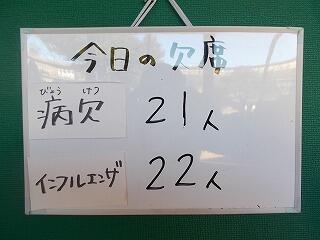 今日の欠席
びょう けつ
病欠 21人
インフルエンザ 22人